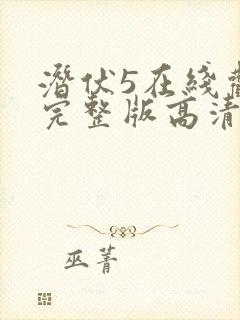 潛伏5在綫
完整版高清
巫菁